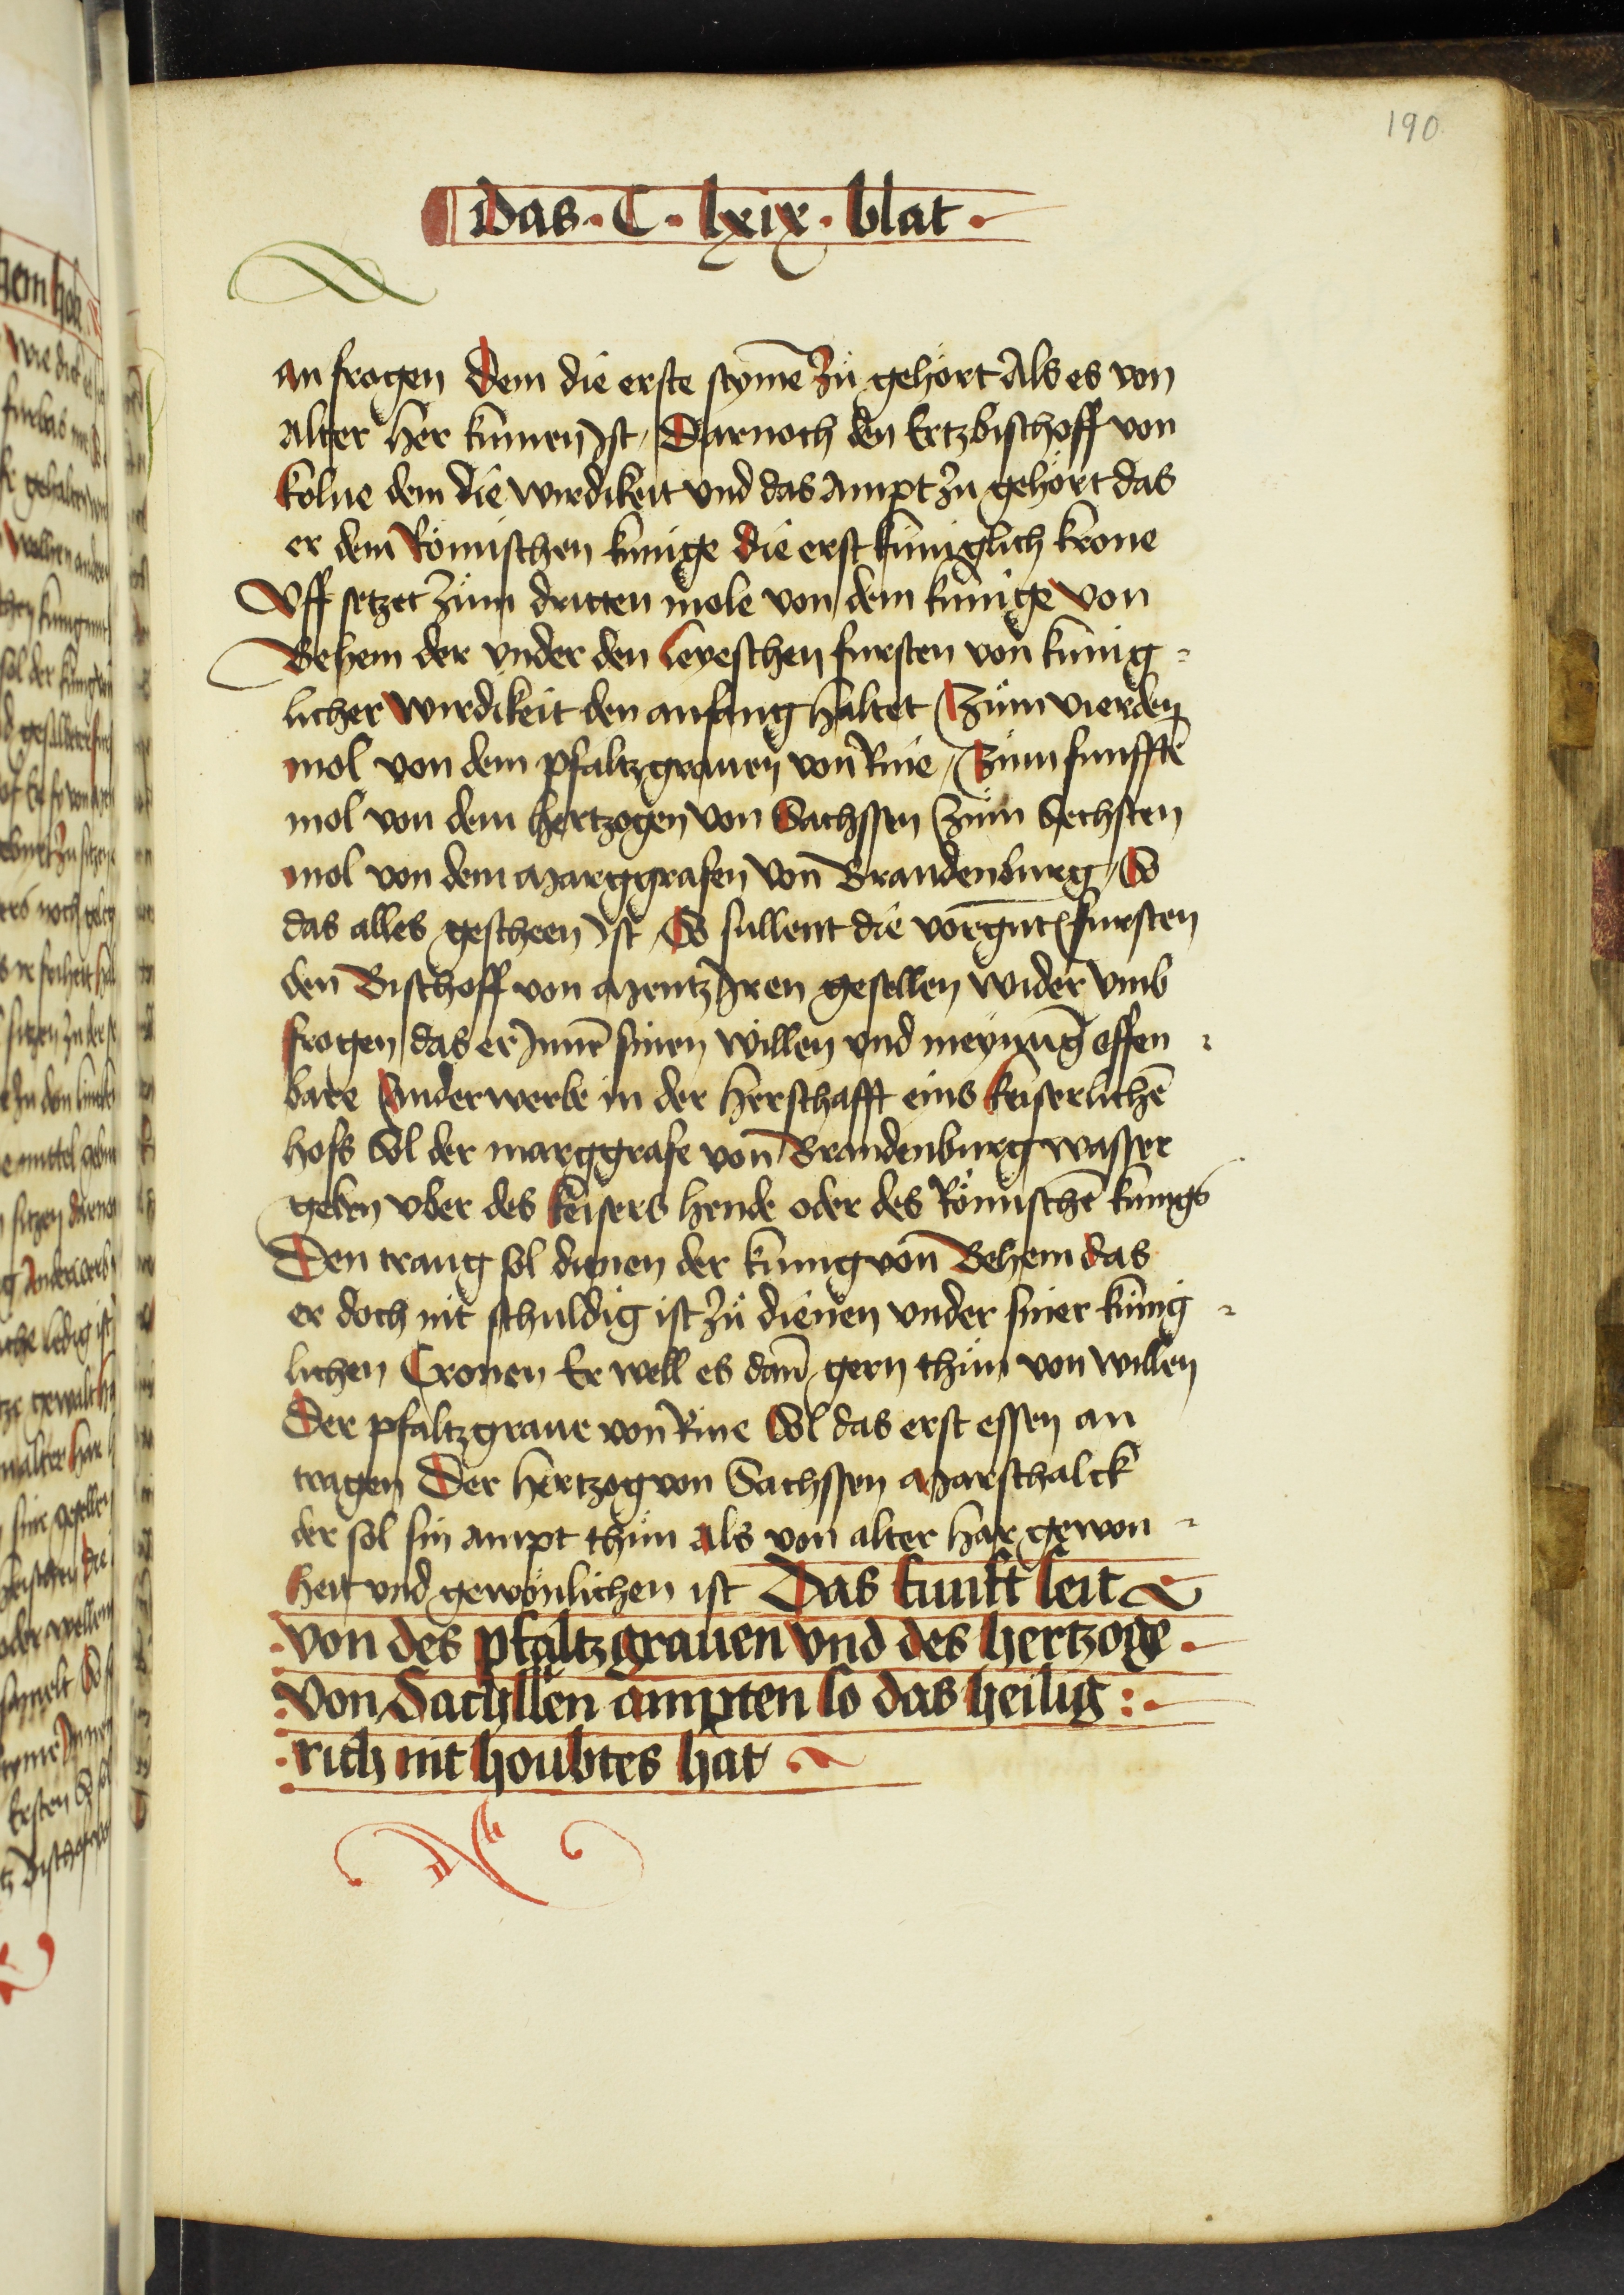 190
Das · C · lxix · blat ·
an frogen Dem die erste stym̄e Zů gehört Als es von
alter her kumen Ist / Darnoch den Ertzbischoff von
kolne dem die wirdikeit vnd das ampt zů gehört das
er dem Römischen kunige die erst kuniglich krone
Vff setzet Zům dritten mole von dem kunige von
Behem der vnder den leyeschen fursten von kunig =
licher wirdikeit den anfang haltet / Zům vierden
mol von dem pfaltzgrauen von Rine / Zům funfftē
mol von dem hertzogen von Sachssen / zům Sechsten
mol von dem Marggrafen von Brandenburg / So
das alles gescheen Ist / So sullent die vorgn̄t fursten
den Bischoff von Mentz Iren gesellen wider vmb
frogen das er Inen sinen willen vnd meynūg offen =
bare Anderwerbe in der herschafft eins keiserlichē
hofs Sol der marggrafe von Brandenburg wasser
geben vber des keisers hende oder des Römischē kunigs
Den trang sol dienen der kunig von Behem das
er doch nit schuldig ist zů dienen vnder siner kunig =
lichen Cronen Er well es dañ gern thůn von willen
Der pfaltzgraue von Rine Sol das erst essen an
tragen Der hertzog von Sachssen Marschalck
der sol sin ampt thůn als von alter har gewon =
heit vnd gewönlichen ist Das funfft seit
von des pfaltzgrauen vnd des hertzogē
von Sachssen ampten so das heilig :
rich nit houbtes hat